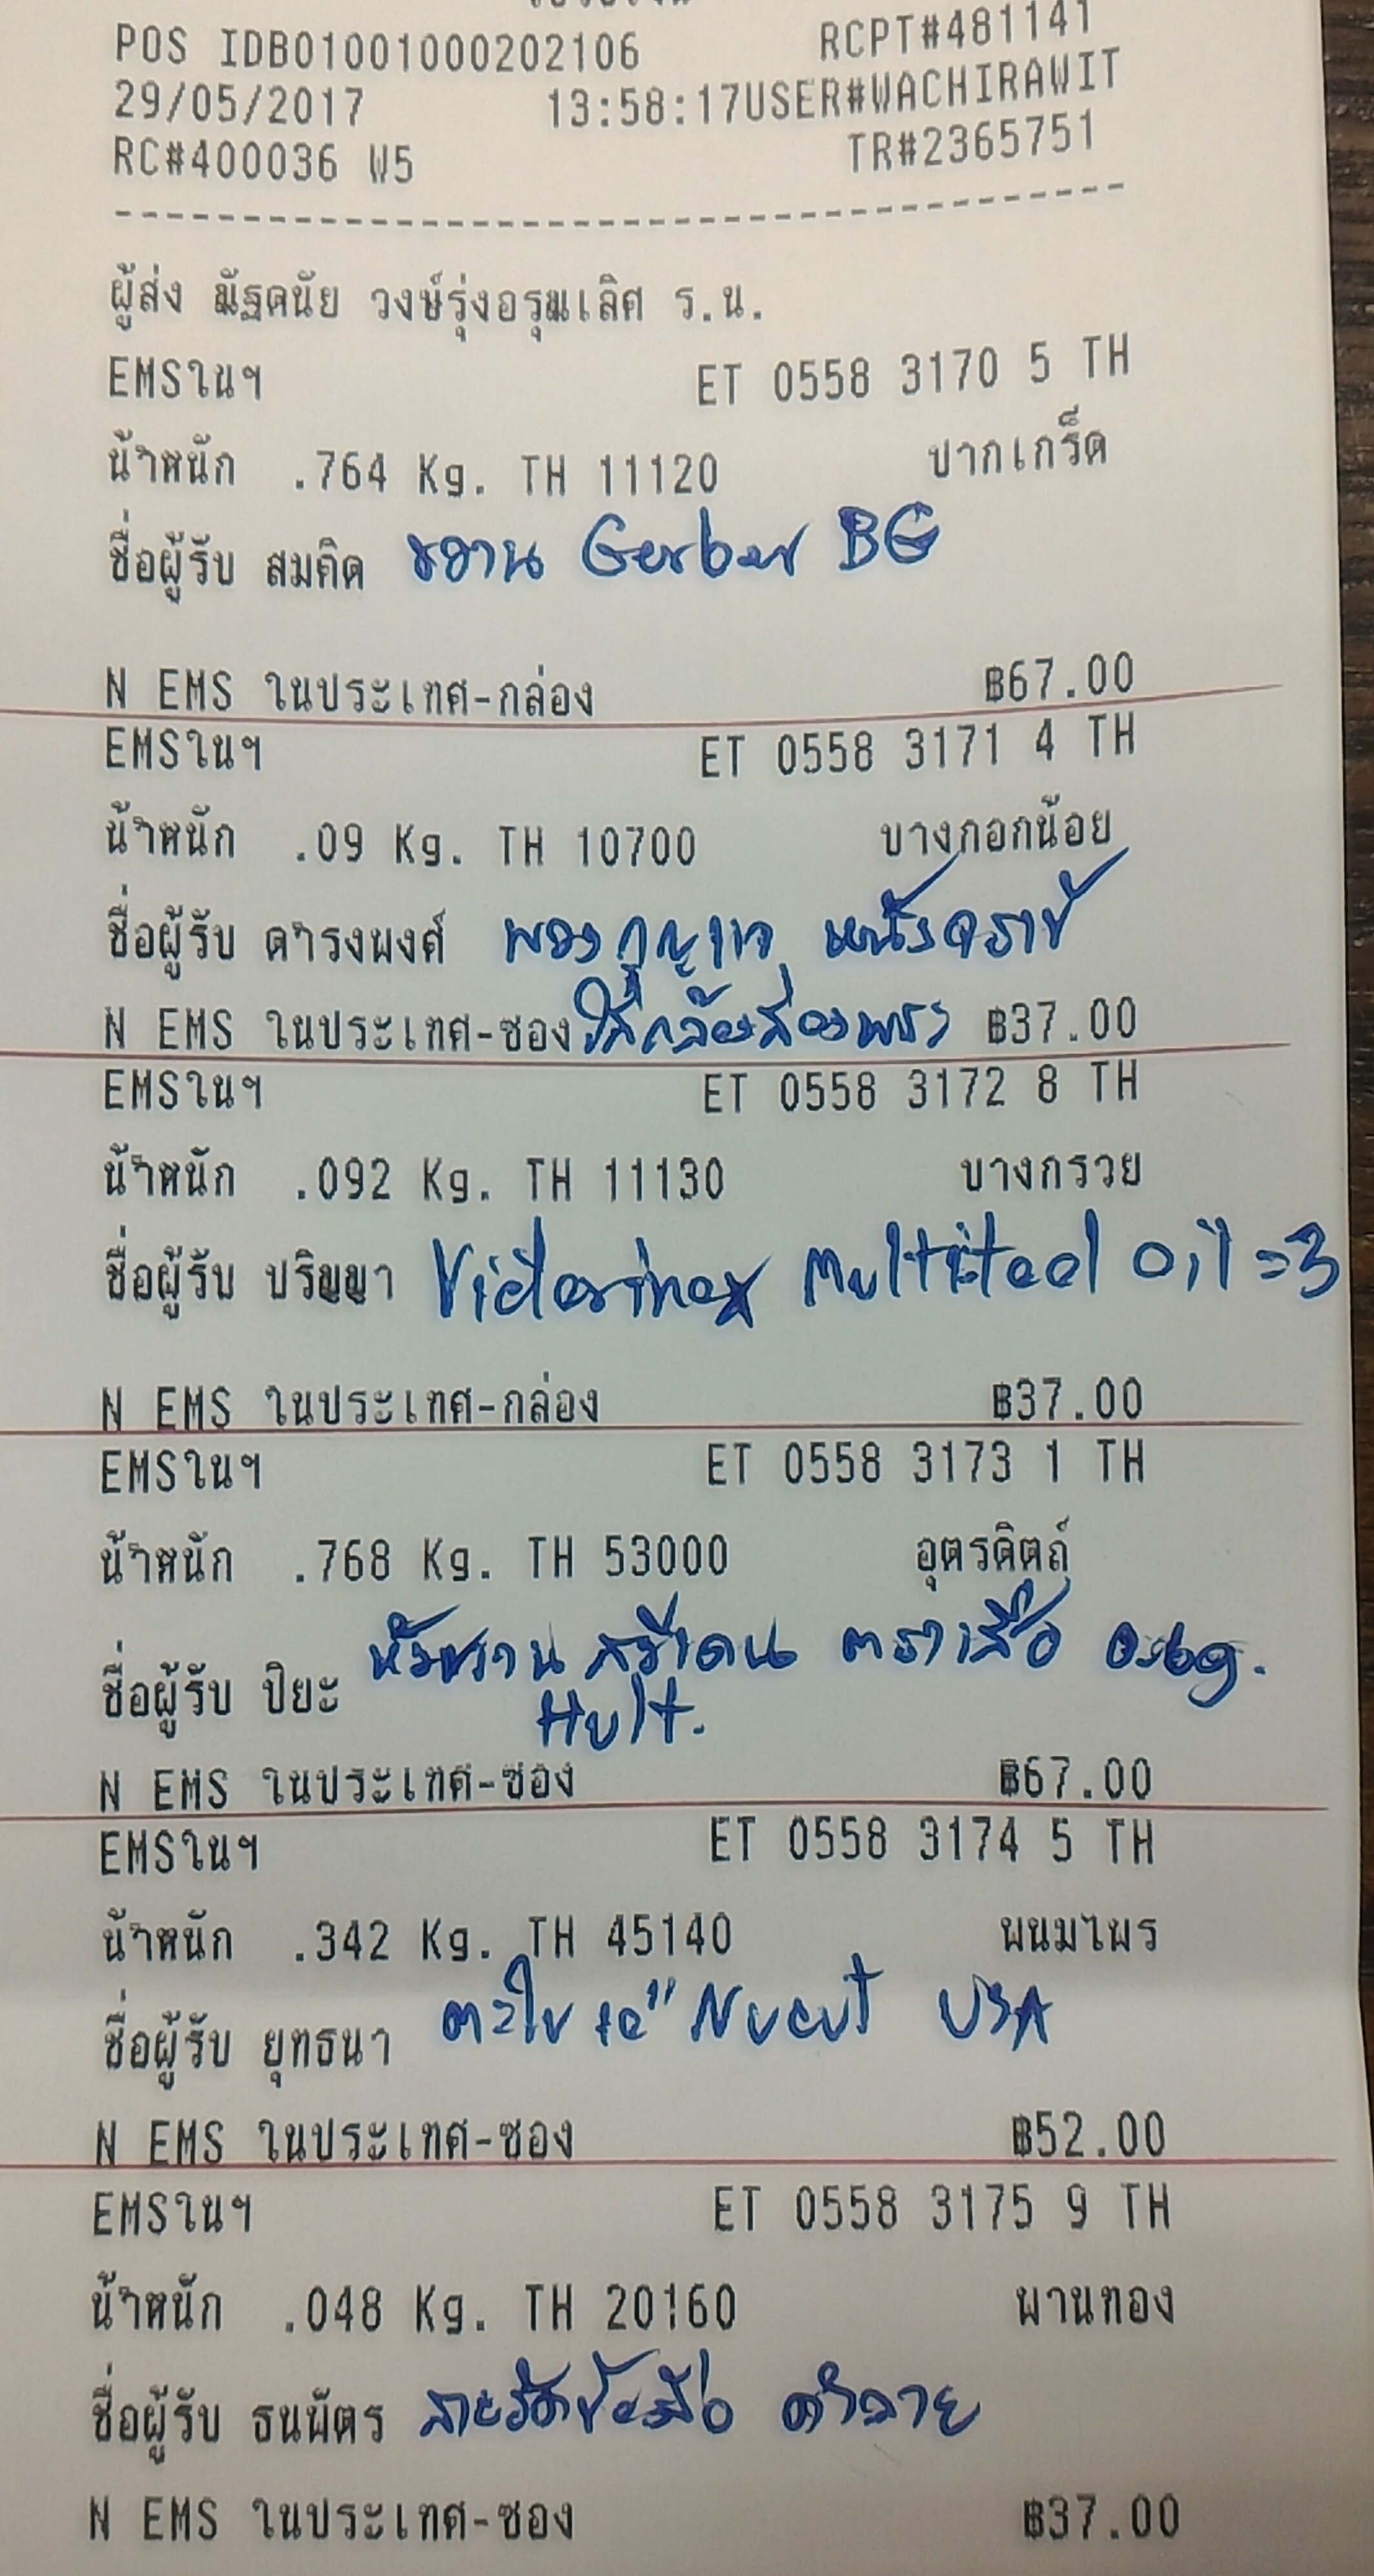 POS IDB01001000202106 RCPT#481141
29/05/2017 13:58:17USER#WACHIRAWIT
RC#400036 W5 TR#2365751
--------------------------------------
ผู้ส่ง มัฐดนัย วงษ์รุ่งอรุณเลิศ ร.น.
EMSในฯ ET 0558 3170 5 TH
น้ำหนัก .764 Kg. TH 11120 ปากเกร็ด
ชื่อผู้รับ สมคิด ขวาน Gerber BG
N EMS ในประเทศ-กล่อง ฿67.00
EMSในฯ ET 0558 3171 4 TH
น้ำหนัก .09 Kg. TH 10700 บางกอกน้อย
ชื่อผู้รับ ดำรงพงศ์ พวงกุญแจ หนังจระเข้
N EMS ในประเทศ-ซอง ใส่กล้องส่องพระ ฿37.00
EMSในฯ ET 0558 3172 8 TH
น้ำหนัก .092 Kg. TH 11130 บางกรวย
ชื่อผู้รับ ปริญญา Victorinox Multitool Oil =3
N EMS ในประเทศ-กล่อง ฿37.00
EMSในฯ ET 0558 3173 1 TH
น้ำหนัก .768 Kg. TH 53000 อุตรดิตถ์
ชื่อผู้รับ ปิยะ หัวขวาน สวีเดน ตราเสือ
Hult.
N EMS ในประเทศ-ซอง ฿67.00
EMSในฯ ET 0558 3174 5 TH
น้ำหนัก .342 Kg. TH 45140 พนมไพร
ชื่อผู้รับ ยุทธนา ตะไบ Nucut USA
N EMS ในประเทศ-ซอง ฿52.00
EMSในฯ ET 0558 3175 9 TH
น้ำหนัก .048 Kg. TH 20160 พานทอง
ชื่อผู้รับ ธนพัตร สายรัดข้อมือ
N EMS ในประเทศ-ซอง ฿37.00